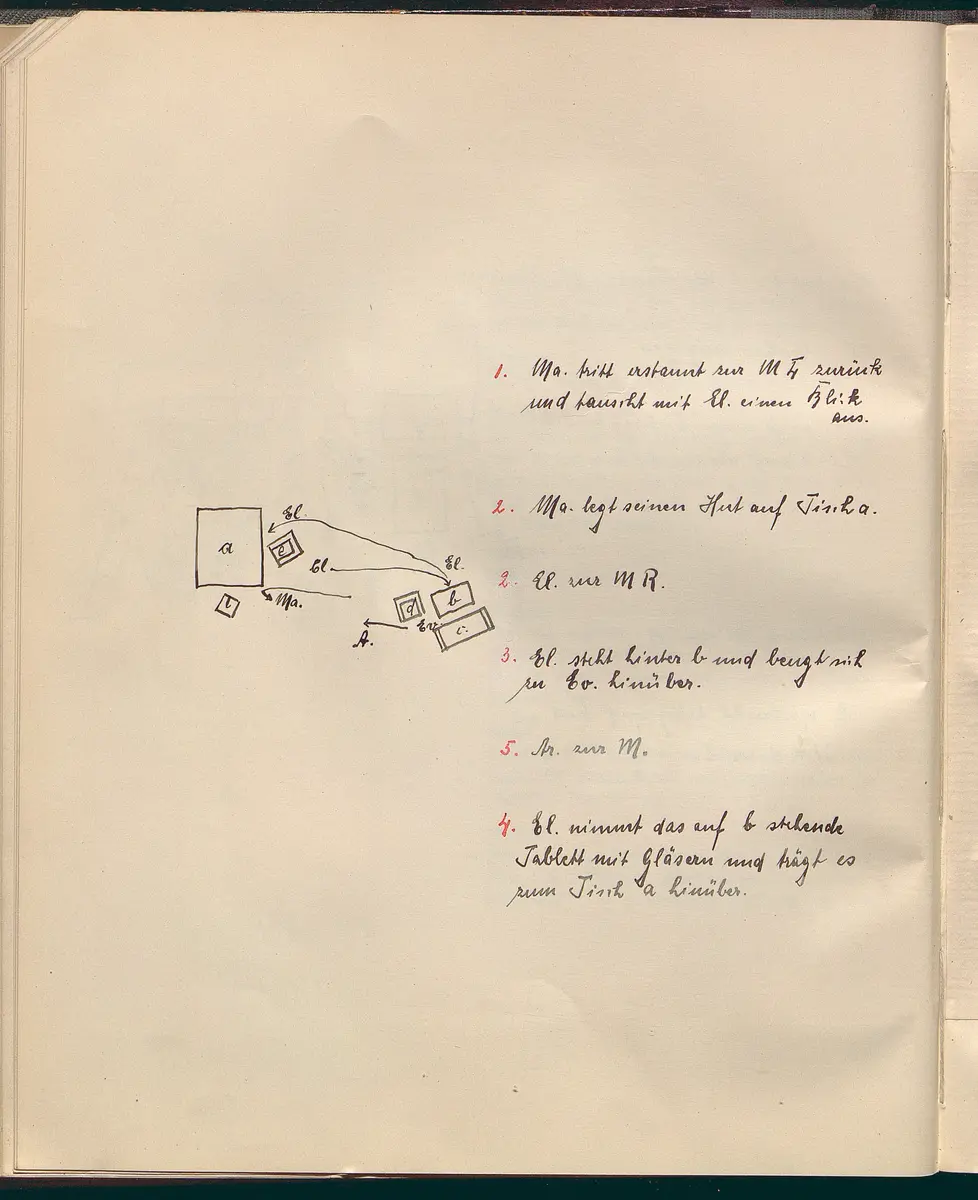 1. Ma. tritt erstaunt zur M L zurück
und tauscht mit El. einen Blick
aus.
2. Ma. legt seinen Hut auf Tisch a.
2. El. zur M R.
3. El. steht hinter b und beugt sich
zu Ev. hinüber.
5. Ar. zur M.
4. El. nimmt das auf b stehende
Tablett mit Gläsern und trägt es
zum Tisch a hinüber.
El.
a
e
El.
El.
Ma.
d
b
Ev.
c.
A.